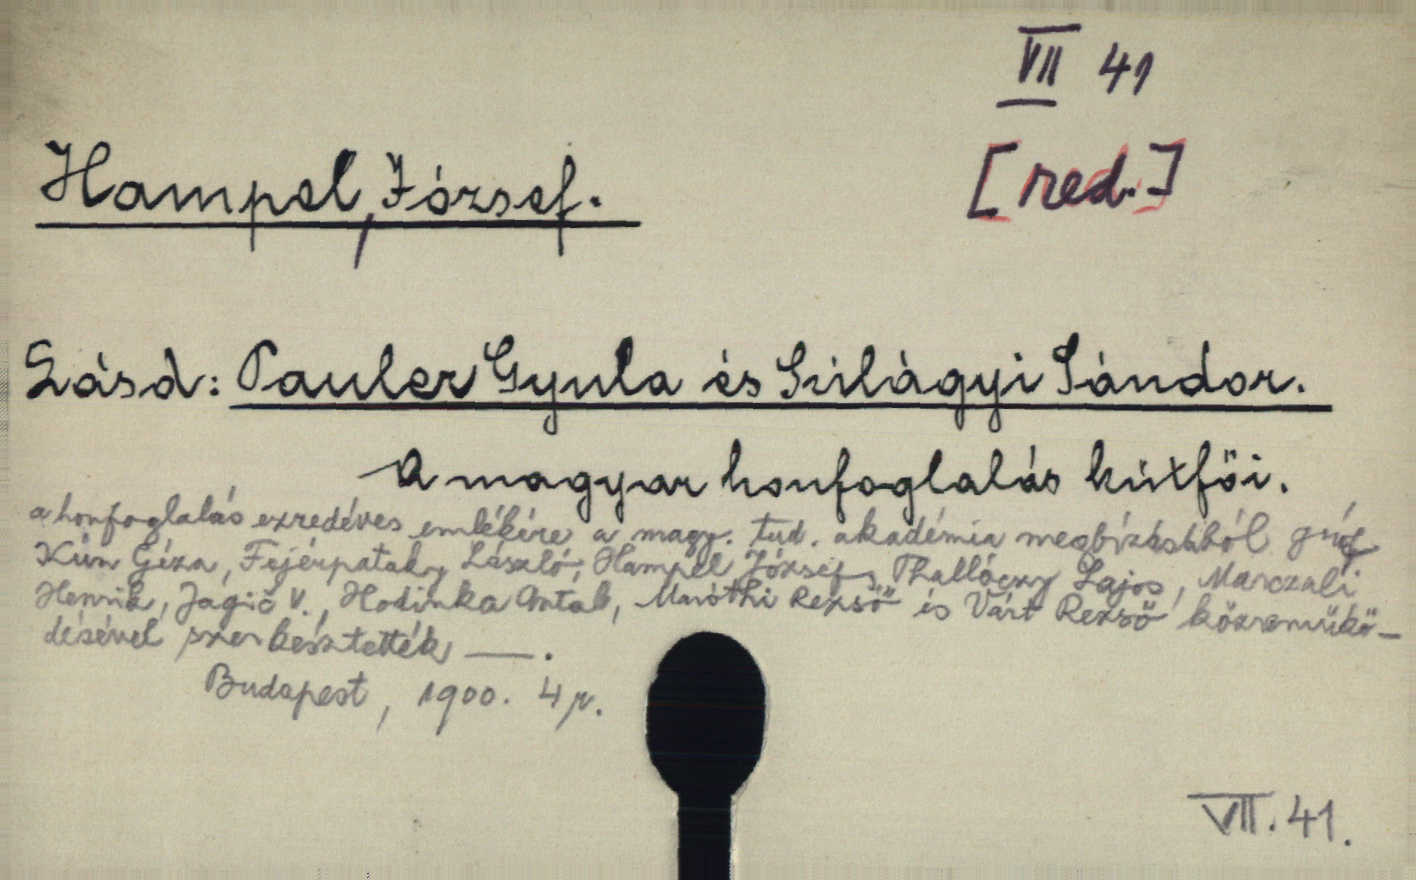 VII 41
Hampel, József.
[red.]
Lásd: Pauler Gyula és Szilágyi Sándor.
A magyar honfoglalás kútfői.
a honfoglalás ezredéves emlékére a magy. tud. akadémia megbízásából gróf
Kún Géza, Fejérpataky László, Hampel József, Thallóczy Lajos, Marczali
Henrik, Jagič V., Hodinka Antal, Maróthi Rezső és Vári Rezső közremükö-
désével szerkesztették —.
Budapest, 1900. 4r.
VII. 41.